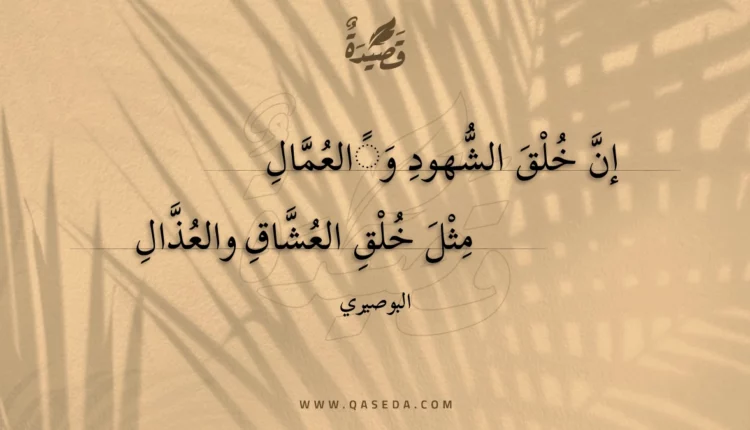 قَصِيْدَةٌ
إنَّ خُلْقَ الشُّهودِ وَ ًالعُمَّالِ
مِثْلَ خُلْقِ العُشَّاقِ والعُذَّالِ
البوصيري
WWW.QASEDA.COM